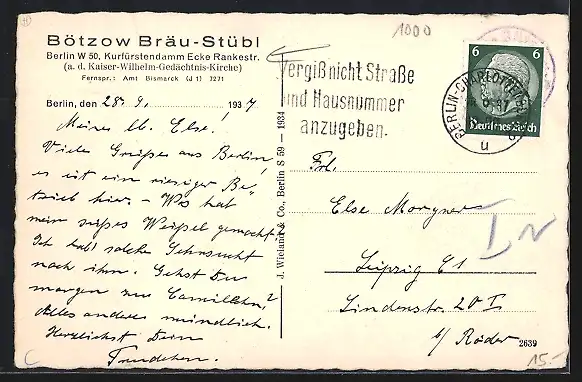 Bötzow Bräu-Stübl
Berlin W 50, Kurfürstendamm Ecke Rankestr.
(a. d. Kaiser-Wilhelm-Gedächtnis-Kirche)
Fernspr.: Amt Bismarck (J 1) 7271
Berlin, den 28. 9. 1937
Meine lb. Else!
Viele Grüsse aus Berlin!
es ist ein riesiger Be-
trieb hier. – Was hat
mein süßes gemacht?
Ich hab' solche Sehnsucht
nach ihm. Gehst Du
morgen
Alles andere mündlich.
Herzlichst Dein
J. Wieland & Co., Berlin S 59 – 1934
1000
Vergiß nicht Straße
und Hausnummer
anzugeben.
BERLIN-CHARLOTTENBURG
u
6 6
Deutsches Reich
Frl.
Else Morgner
Leipzig C1
Lindenstr. 20 I
b/ Röder
2639
15.-